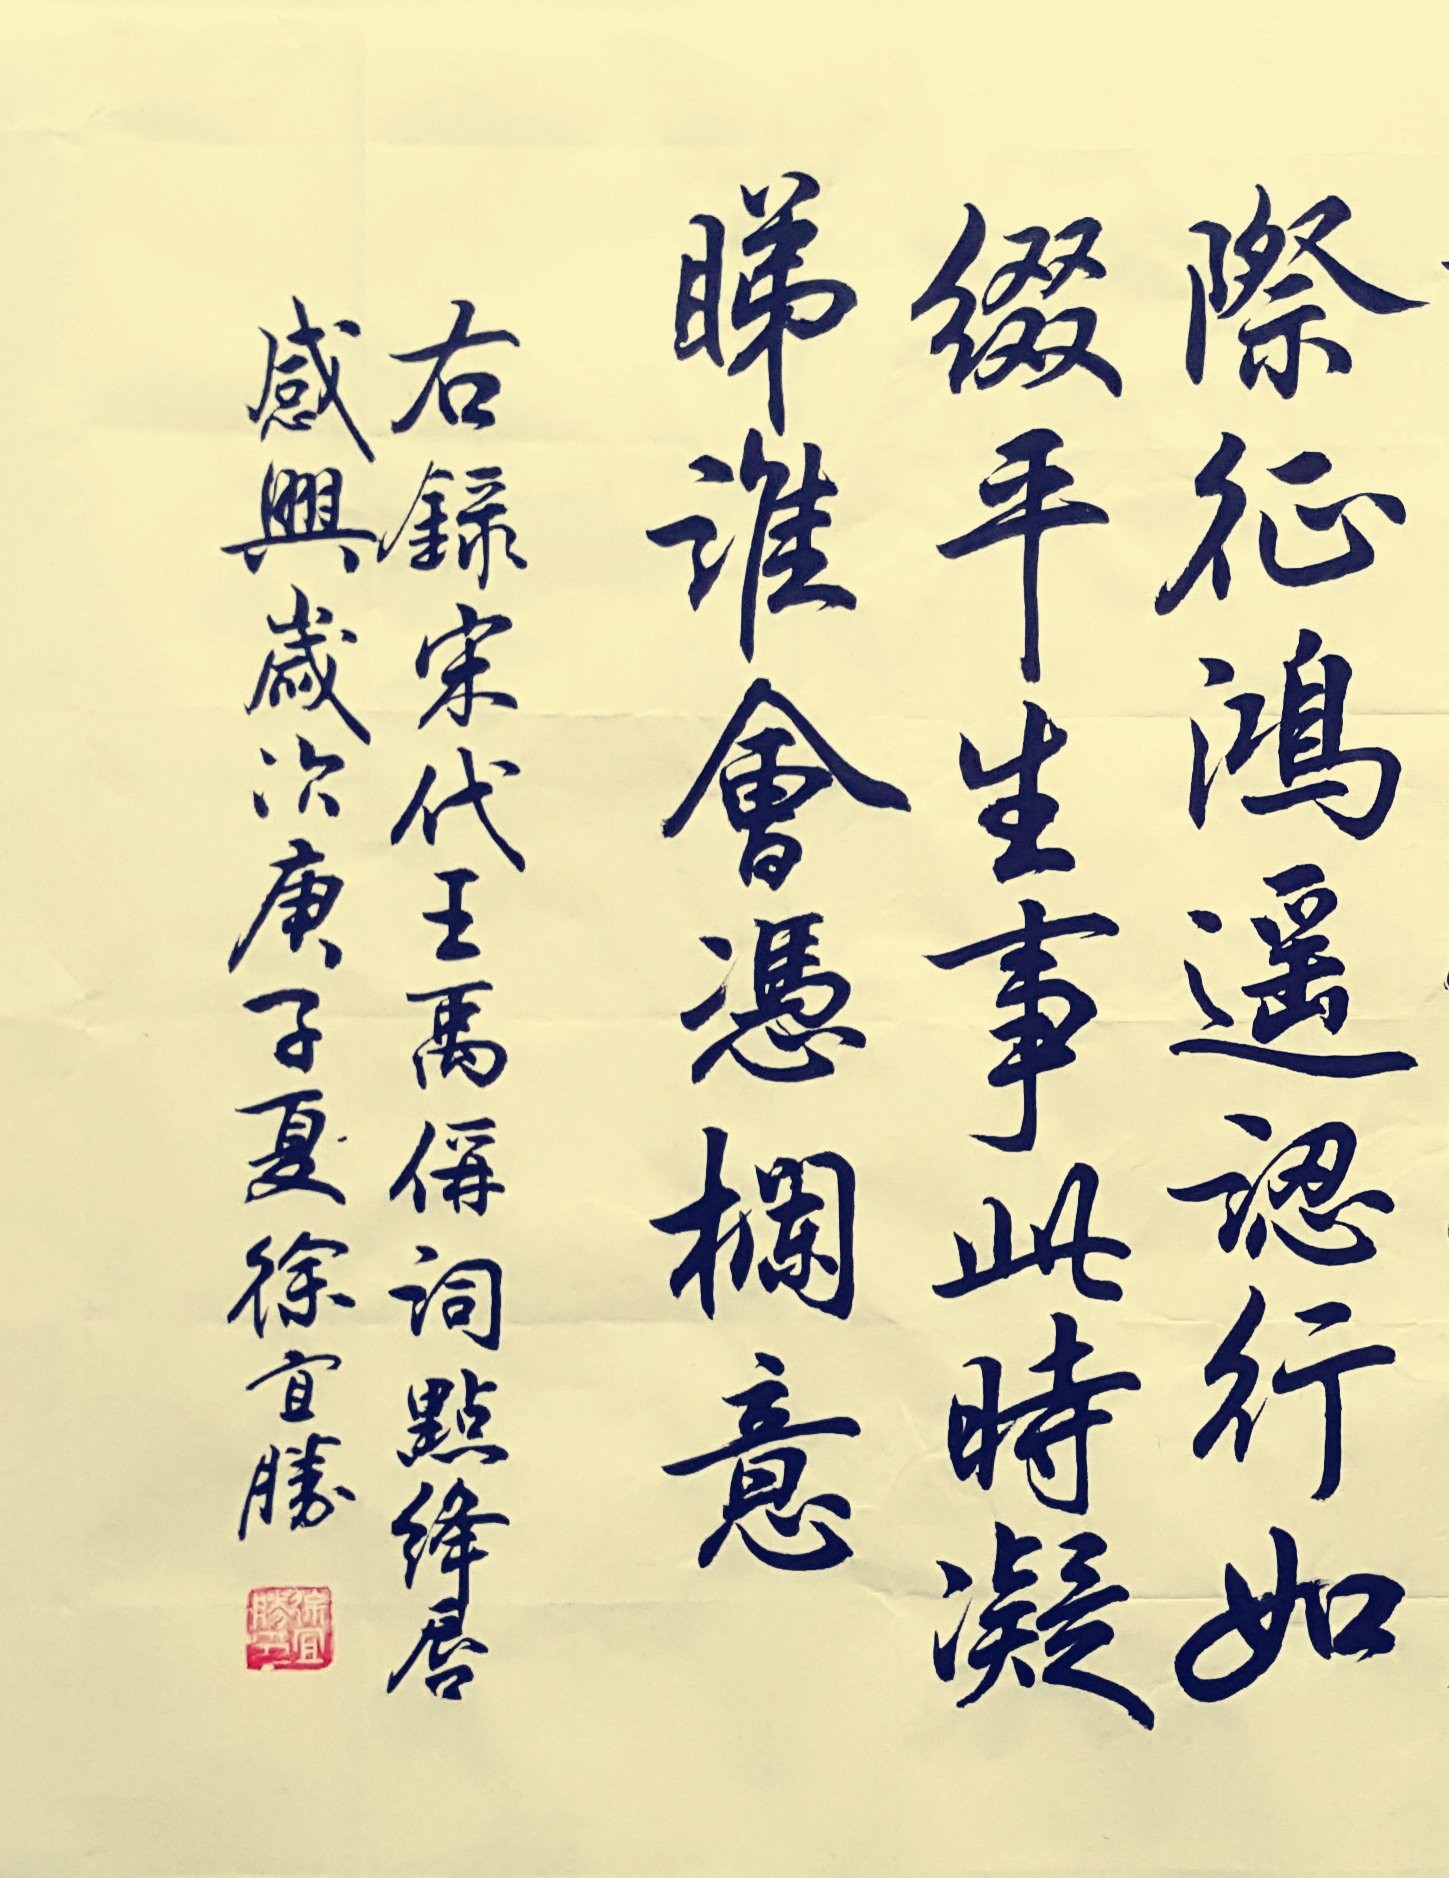 際征鴻遥認行如
綴平生事此時凝
睇誰會憑欄意
右錄宋代王禹偁詞點絳唇
感興歲次庚子夏徐宜勝